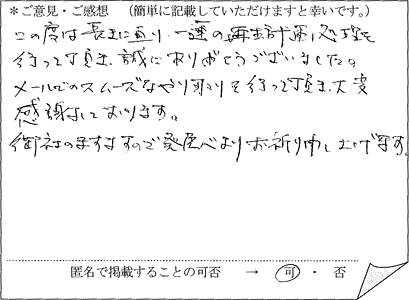 ＊ご意見・ご感想 （簡単に記載していただけますと幸いです。）
この度は長きに亘り、一連の再生計画処理を
行って頂き、誠にありがとうございました。
メールでのスムーズなやり取りを行って頂き、大変
感謝しております。
御社のますますのご発展心よりお祈り申し上げます。
匿名で掲載することの可否 → 可 ・ 否